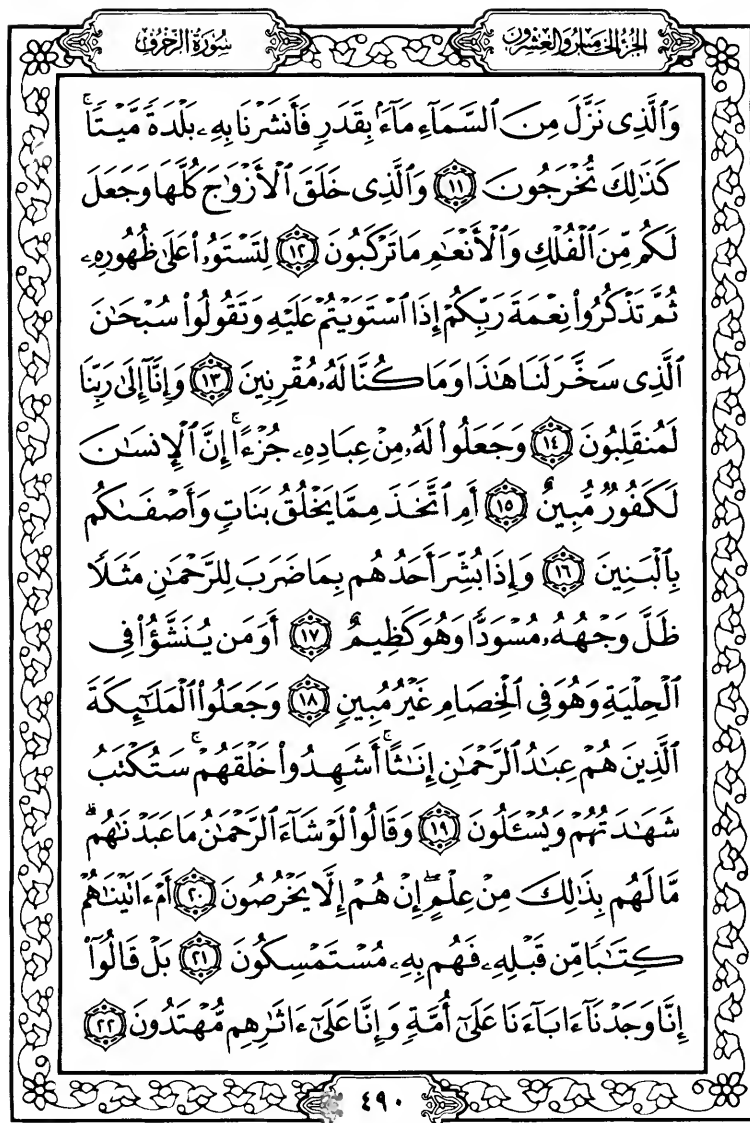 الجزء الخامس والعشرون
سورة الزخرف
وَٱلَّذِى نَزَّلَ مِنَ ٱلسَّمَآءِ مَآءَۢ بِقَدَرٍ فَأَنشَرْنَا بِهِۦ بَلْدَةً مَّيْتًا ۚ
كَذَٰلِكَ تُخْرَجُونَ ١١ وَٱلَّذِى خَلَقَ ٱلْأَزْوَٰجَ كُلَّهَا وَجَعَلَ
لَكُم مِّنَ ٱلْفُلْكِ وَٱلْأَنْعَٰمِ مَا تَرْكَبُونَ ١٢ لِتَسْتَوُۥا۟ عَلَىٰ ظُهُورِهِۦ
ثُمَّ تَذْكُرُوا۟ نِعْمَةَ رَبِّكُمْ إِذَا ٱسْتَوَيْتُمْ عَلَيْهِ وَتَقُولُوا۟ سُبْحَٰنَ
ٱلَّذِى سَخَّرَ لَنَا هَٰذَا وَمَا كُنَّا لَهُۥ مُقْرِنِينَ ١٣ وَإِنَّآ إِلَىٰ رَبِّنَا
لَمُنقَلِبُونَ ١٤ وَجَعَلُوا۟ لَهُۥ مِنْ عِبَادِهِۦ جُزْءًا ۚ إِنَّ ٱلْإِنسَٰنَ
لَكَفُورٌ مُّبِينٌ ١٥ أَمِ ٱتَّخَذَ مِمَّا يَخْلُقُ بَنَاتٍ وَأَصْفَىٰكُم
بِٱلْبَنِينَ ١٦ وَإِذَا بُشِّرَ أَحَدُهُم بِمَا ضَرَبَ لِلرَّحْمَٰنِ مَثَلًا
ظَلَّ وَجْهُهُۥ مُسْوَدًّا وَهُوَ كَظِيمٌ ١٧ أَوَمَن يُنَشَّؤُا۟ فِى
ٱلْحِلْيَةِ وَهُوَ فِى ٱلْخِصَامِ غَيْرُ مُبِينٍ ١٨ وَجَعَلُوا۟ ٱلْمَلَٰٓئِكَةَ
ٱلَّذِينَ هُمْ عِبَٰدُ ٱلرَّحْمَٰنِ إِنَٰثًا ۚ أَشَهِدُوا۟ خَلْقَهُمْ ۚ سَتُكْتَبُ
شَهَٰدَتُهُمْ وَيُسْـَٔلُونَ ١٩ وَقَالُوا۟ لَوْ شَآءَ ٱلرَّحْمَٰنُ مَا عَبَدْنَٰهُم ۗ
مَّا لَهُم بِذَٰلِكَ مِنْ عِلْمٍ ۖ إِنْ هُمْ إِلَّا يَخْرُصُونَ ٢٠ أَمْ ءَاتَيْنَٰهُمْ
كِتَٰبًا مِّن قَبْلِهِۦ فَهُم بِهِۦ مُسْتَمْسِكُونَ ٢١ بَلْ قَالُوٓا۟
إِنَّا وَجَدْنَآ ءَابَآءَنَا عَلَىٰٓ أُمَّةٍ وَإِنَّا عَلَىٰٓ ءَاثَٰرِهِم مُّهْتَدُونَ ٢٢
٤٩٠